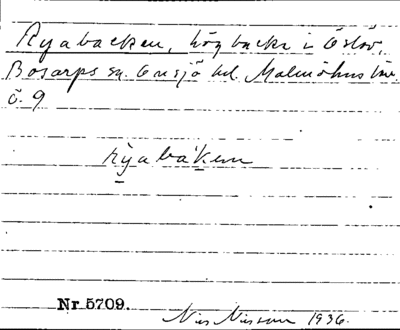 Ryabacken, hög backe i Öslöv,
Bosarps sn. Onsjö hd. Malmöhus län.
ö. 9
ry̱aba'ḵen
Nr 5709.
Nils Nilsson 1936.